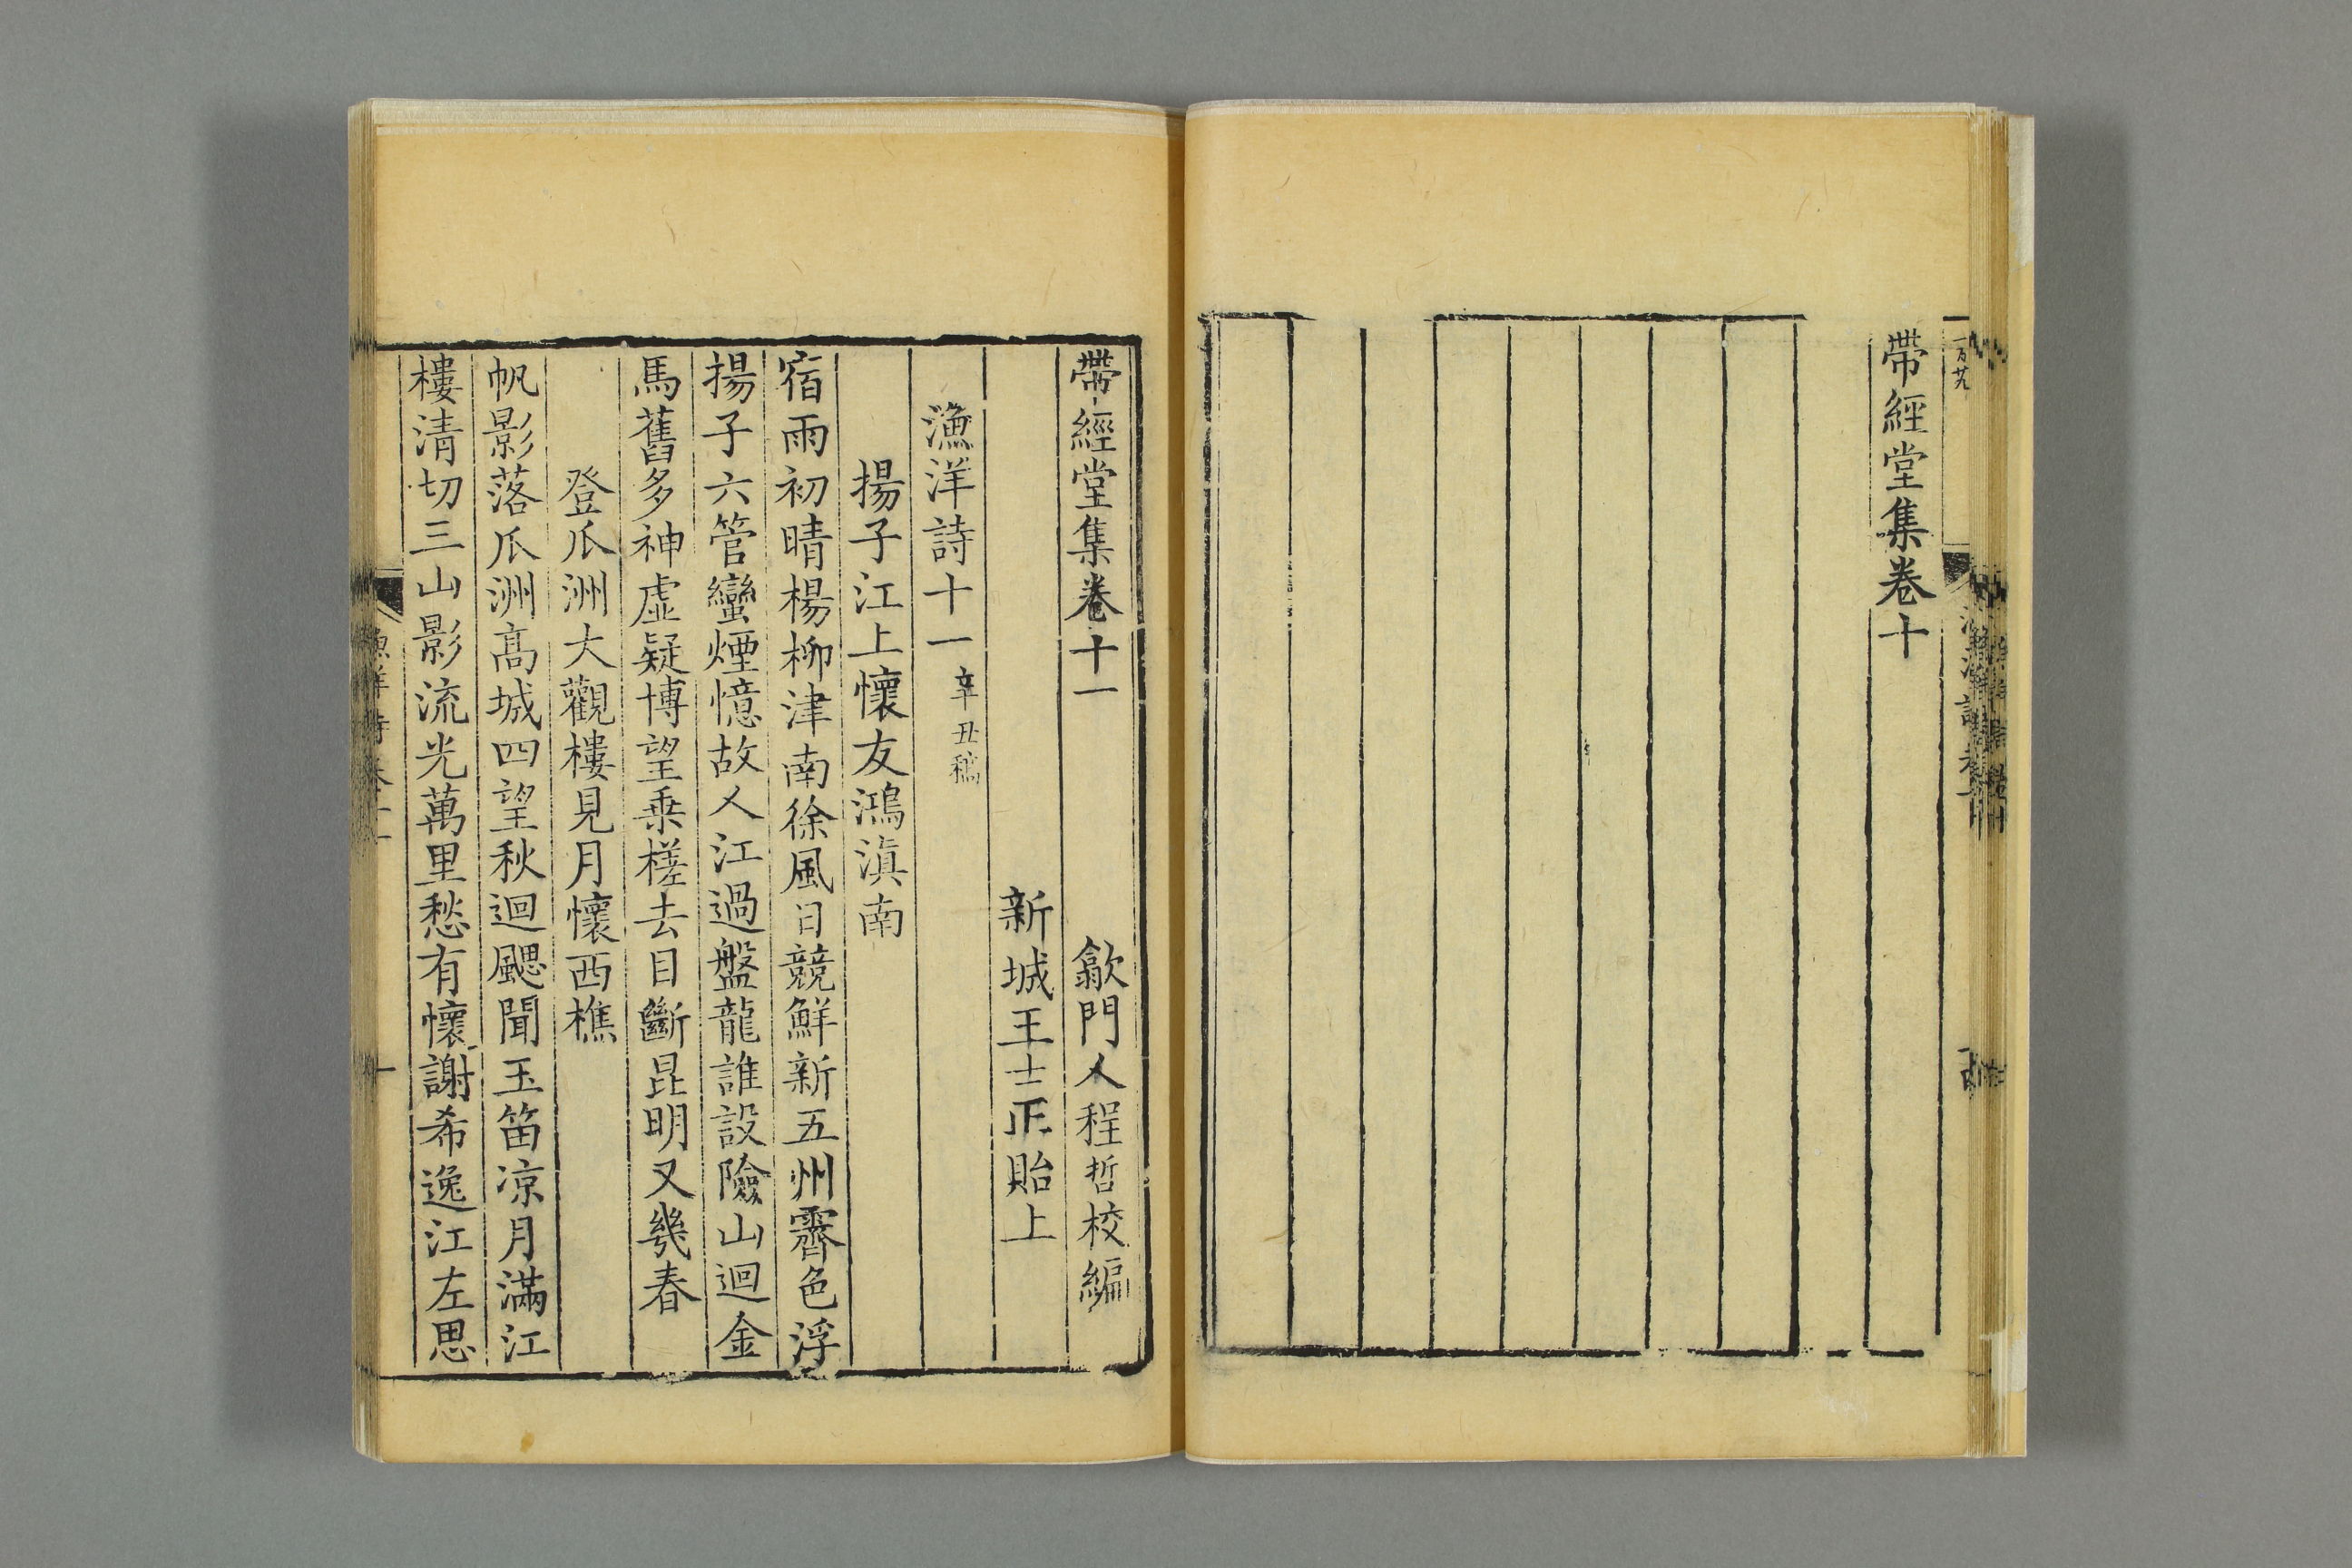 帶經堂集卷十
帶經堂集卷十一
歙門人程哲校編
新城王士正貽上
漁洋詩十一 辛丑稿
揚子江上懷友鴻滇南
宿雨初晴楊柳津南徐風日競鮮新五州霽色浮
揚子六管蠻煙憶故人江過盤龍誰設險山迴金
馬舊多神虛疑博望乗槎去目斷昆明又幾春
登瓜洲大觀樓見月懷西樵
帆影落瓜洲髙城四望秋迴颸聞玉笛凉月滿江
樓清切三山影流光萬里愁有懷謝希逸江左思